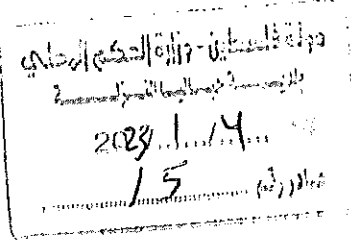 دولة فلسطين - وزارة الحكم المحلي
بلدية
2023/1/4
صادر رقم 15